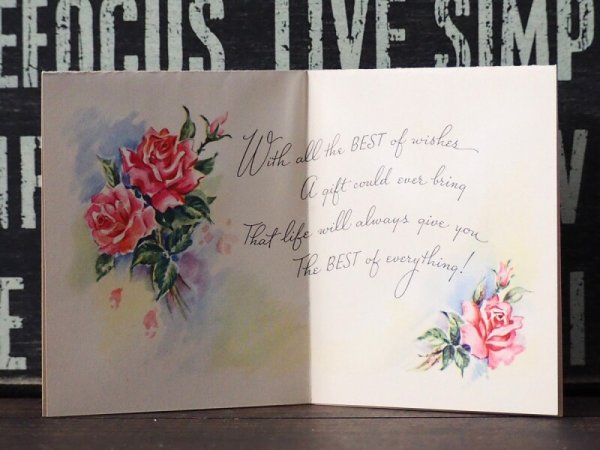 EFOCUS LIVE SIMP
With all the BEST of wishes
A gift could ever bring
That life will always give you
The BEST of everything!